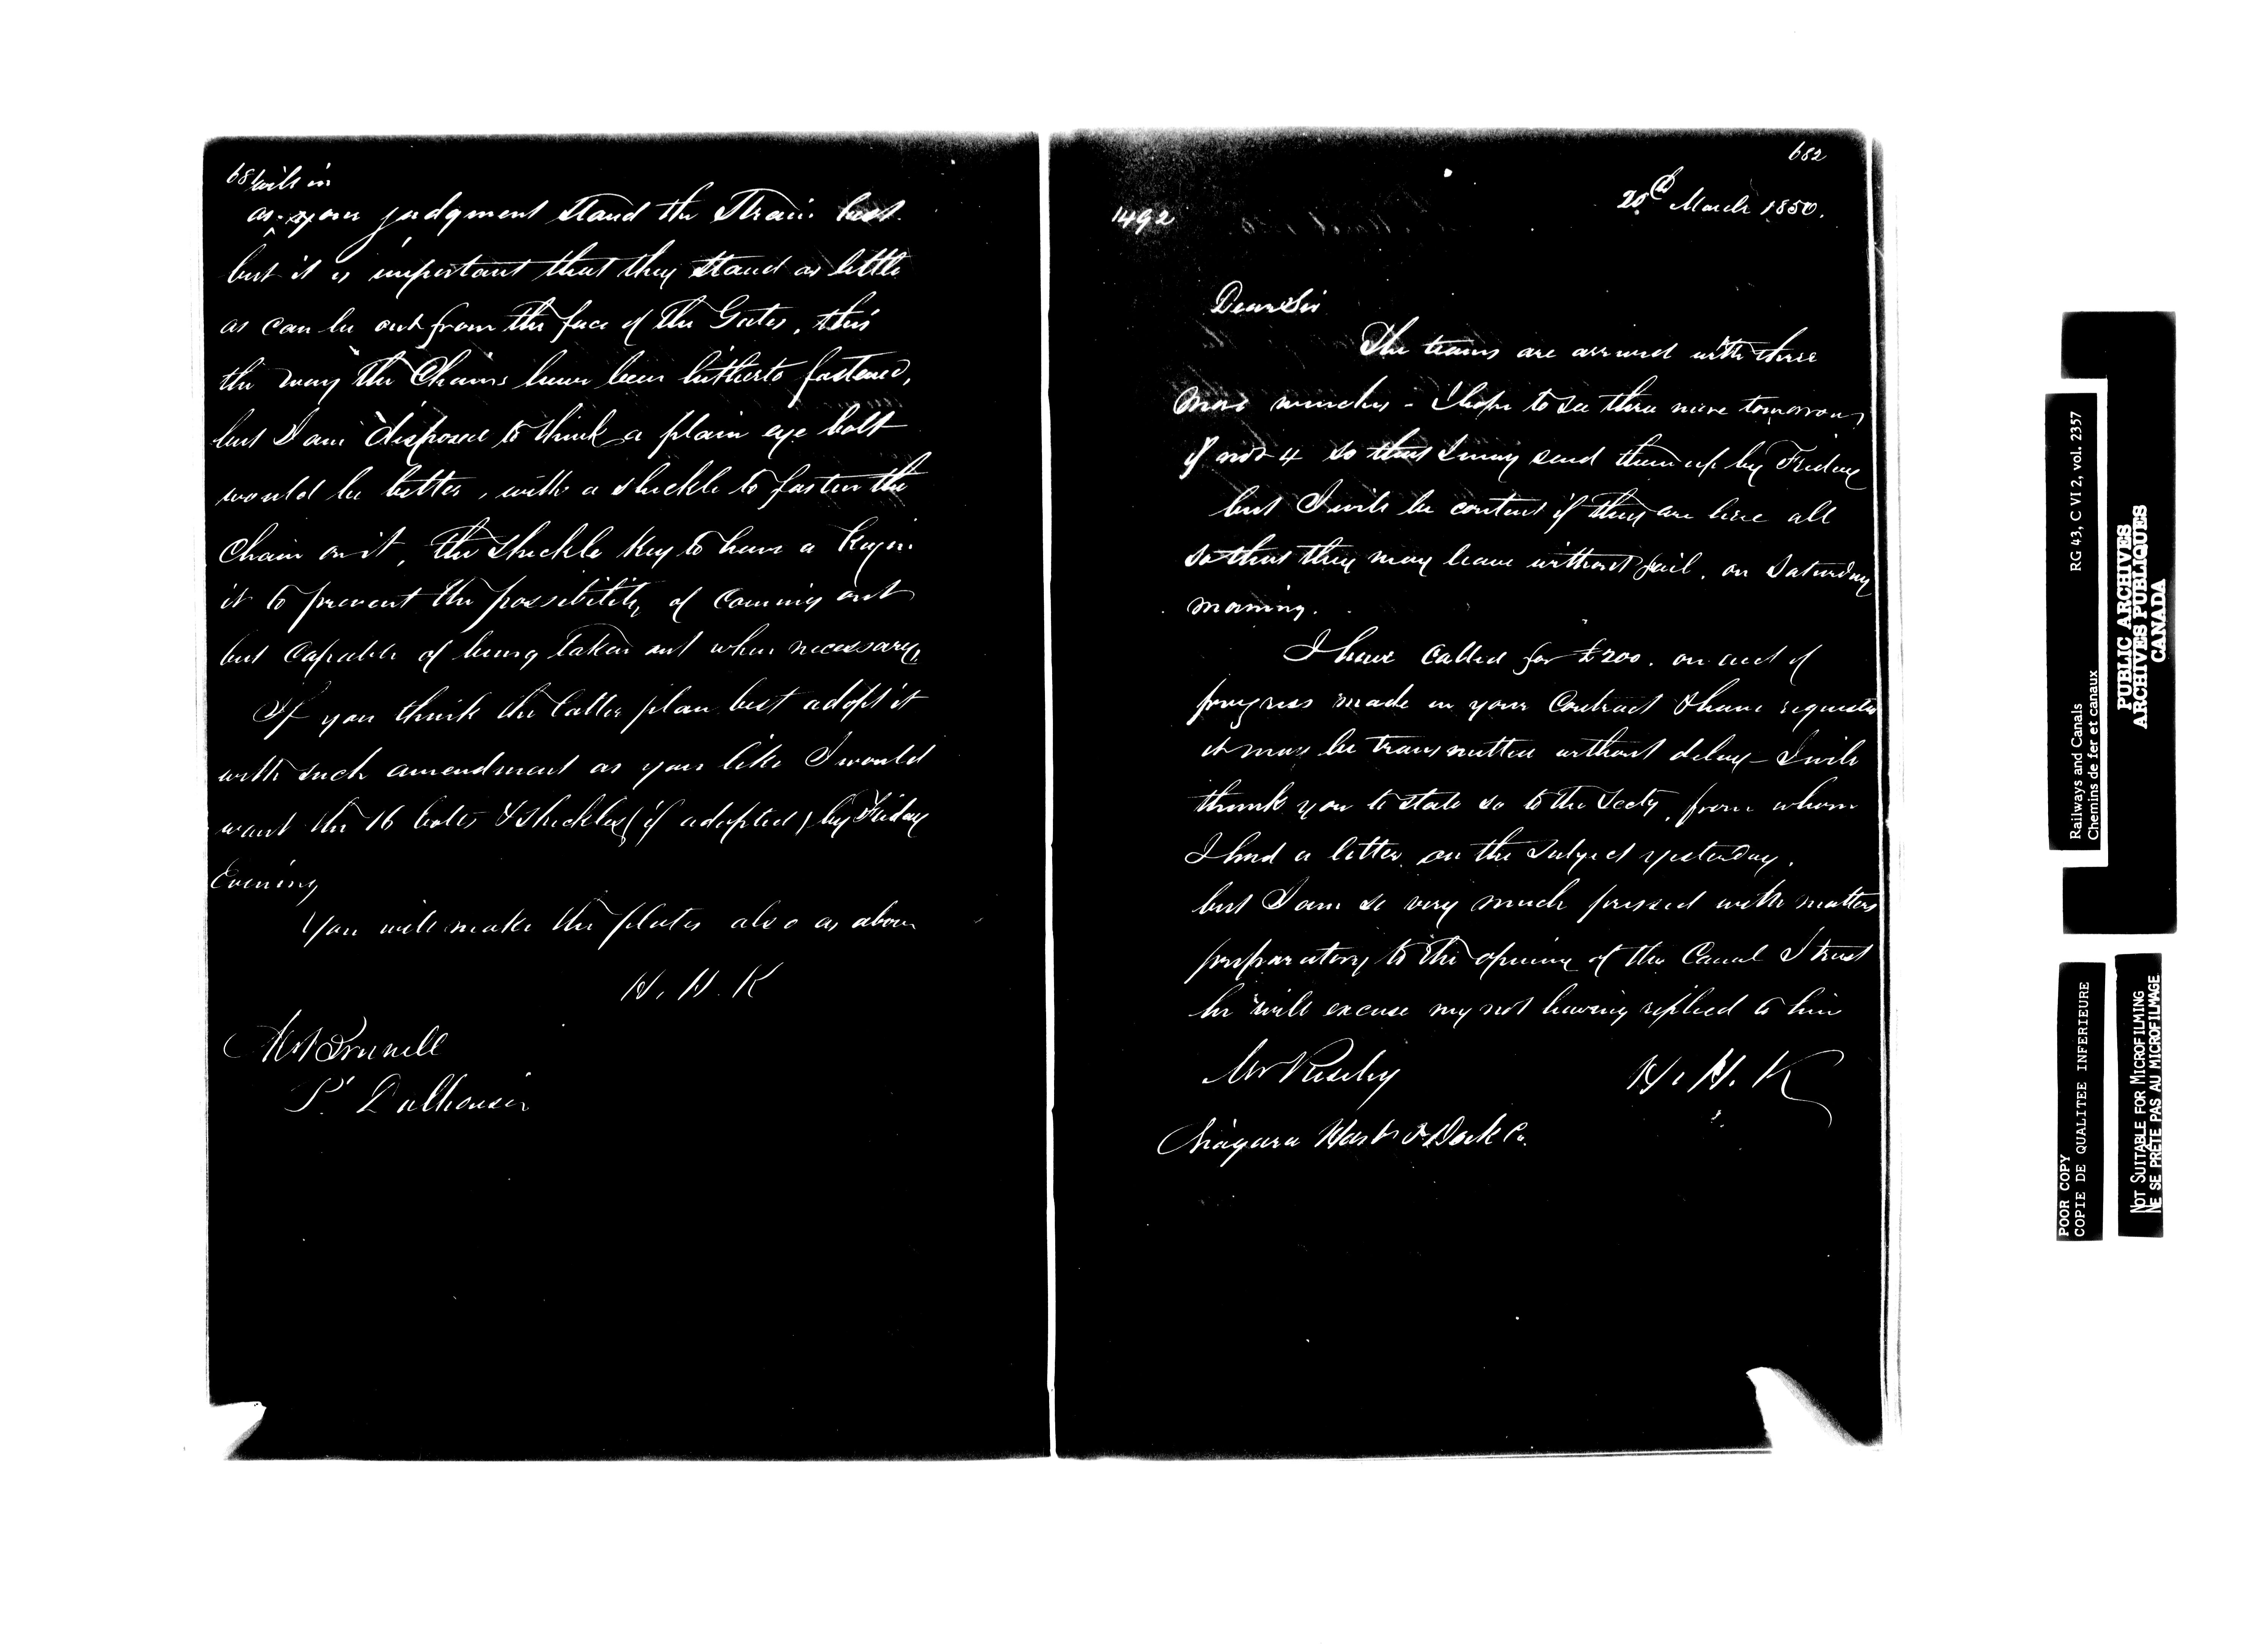 681
will in
as your judgment stand the Strain best.
but it is important that they stand as little
as can be out from the face of the Gates, this
the way the Chains have been hitherto fastened,
but I am disposed to think a plain eye bolt
would be better, with a shickle to fasten the
Chain on it, the Shickle Key to have a Key in
it to prevent the possibility of Coming out
but Capable of being taken out when necessary,
If you think the latter plan best adopt it
with such amendment as you like I would
want the 16 bolts & shickles (if adopted) by Friday
Evening
You will make the plates also as above
H. H. K
P. Dalhousie
682
1492
20th March 1850.
Dear Sir
The teams are arrived with three
more winches - I hope to see three more tomorrow,
if not 4 so that I may send them up by Friday
but I will be content if they are here all
so that they may leave without fail, on Saturday
morning.
I have Called for £200. on acct of
progress made on your Contract & have requested
it may be transmitted without delay - I will
thank you to state so to the Secty, from whom
I had a letter on the subject yesterday,
but I am so very much pressed with matters
preparatory to the opening of the Canal I trust
he will excuse my not having replied to him
H. H. K
Mr
Niagara Harbr & Dock Co.
Railways and Canals
Chemins de fer et canaux
RG 43, C VI 2, vol. 2357
PUBLIC ARCHIVES
ARCHIVES PUBLIQUES
CANADA
POOR COPY
COPIE DE QUALITEE INFERIEURE
NOT SUITABLE FOR MICROFILMING
NE SE PRÊTE PAS AU MICROFILMAGE